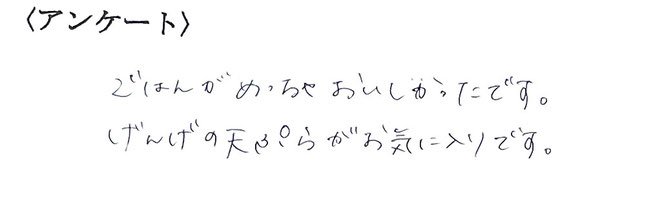 〈アンケート〉
ごはんがめっちゃおいしかったです。
げんげの天ぷらがお気に入りです。